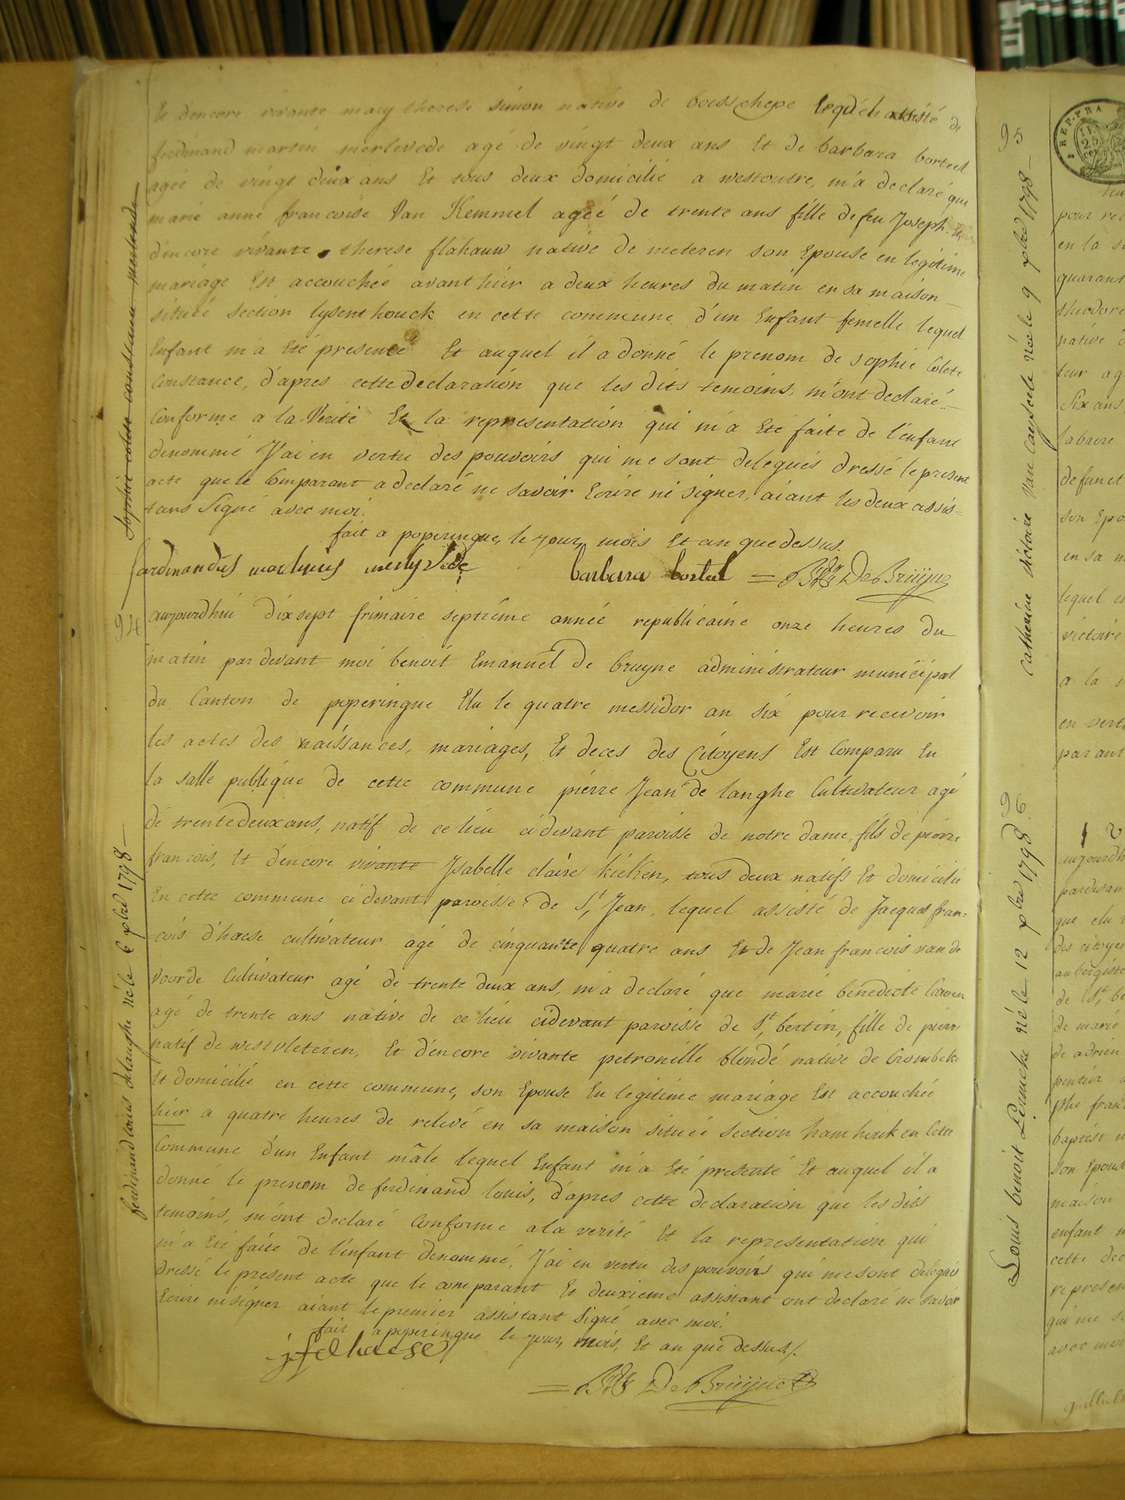 Et dencore vivante mary therese simon native de boesschepe lequel assisté de
ferdinand martin merlevede agé de vingt deux ans Et de barbara borteel
agée de vingt deux ans Et tous deux domicilié a westoutre, m'a declaré que
marie anne francoise Van Kemmel agéé de trente ans fille de feu Joseph
dencore vivante therese flahauw native de meteren son Epouse en legitime
mariage Est accouchée avant hier a deux heures du matin en sa maison
située section lysenthouck en cette commune d'un Enfant femelle lequel
Enfant m'a Eté presenté Et auquel il a donné le prenom de sophie Colete
Constance, d'apres cette declaration que les dits temoins, m'ont declaré
Conforme a la Verité Et la representation qui m'a Eté faite de l'enfant
denommé J'ai en vertu des pouvoirs qui me sont delegués dressé le present
acte que le Comparant a declaré ne savoir Ecrire ni signer, aiant les deux assis=
tans Signé avec moi.
fait a poperingue, le jour, mois Et an que dessus.
ferdinandus martinus merlevede barbara borteel = De Bruijne
Sophie colete constance merlevede
94
aujourdhui dixsept frimaire septiéme année republicaine onze heures du
matin pardevant moi benoit Emanuel de bruyne administrateur municipal
du Canton de poperingue Elu le quatre messidor an six pour recevoir
les actes des naissances, mariages, Et deces des Citoyens Est Comparu En
la salle publique de cette commune pierre Jean de langhe Cultivateur agé
de trente deux ans, natif de ce lieu cidevant paroisse de notre dame fils de pierre
francois, Et dencore vivante Ysabelle claire Kieken, tous deux natifs Et domicilié
En cette commune cidevant paroisse de St Jean, lequel assisté de Jacques fran=
cois d'haese cultivateur agé de cinquante quatre ans Et de Jean francois vande
voorde Cultivateur agé de trente deux ans m'a declaré que marie benedicte
agé de trente ans native de ce lieu cidevant paroisse de St bertin, fille de pierre
natif de westvleteren, Et dencore vivante petronille blondé native de Crombeke
Et domicilié en cette commune, son Epouse En legitime mariage Est accouchée
hier a quatre heures de relevé en sa maison située section hamhouk en Cette
Commune d'un Enfant mâle lequel Enfant m'a Eté presenté Et auquel il a
donné le prenom de ferdinand louis, d'apres cette declaration que les dits
temoins, m'ont declaré Conforme a la verité Et la representation qui
m'a Eté faite de l'enfant denommé, J'ai en vertu des pouvoirs qui me sont delegués
dressé le present acte que le comparant Et deuxieme assistant ont declaré ne savoir
Ecrire ni signer aiant le premier assistant signé avec moi.
fait a poperingue le jour, mois, Et an que dessus.
j f d haese
= De Bruijne
ferdinand louis delanghe né le 6 xbre 1798
95
catherine victoire van cayseele née le 9 xbre 1798
pour rec
en la s
quarant
theodore
native d
leur ag
Six ans
labeure
defunct
son Epo
en sa m
lequel e
victoire
a la
en vert
parant
96
Louis benoit né le 12 xbre 1798
aujourdh
pardevan
que elu
des citoye
aubergiste
de St be
de marie
de adrien
pentier
phe fran
baptiste
son Epous
maison
enfant
cette dec
represen
qui me s
avec moi